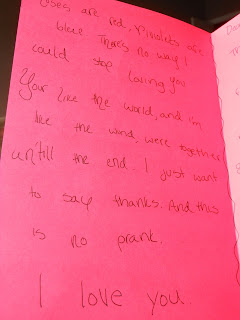 oses are red, Violets are
blue There's no way I
could stop loving you
Your like the world, and i'm
like the wind, were together
un'till the end. I just want
to say thanks. And this
is no prank.
I love you.